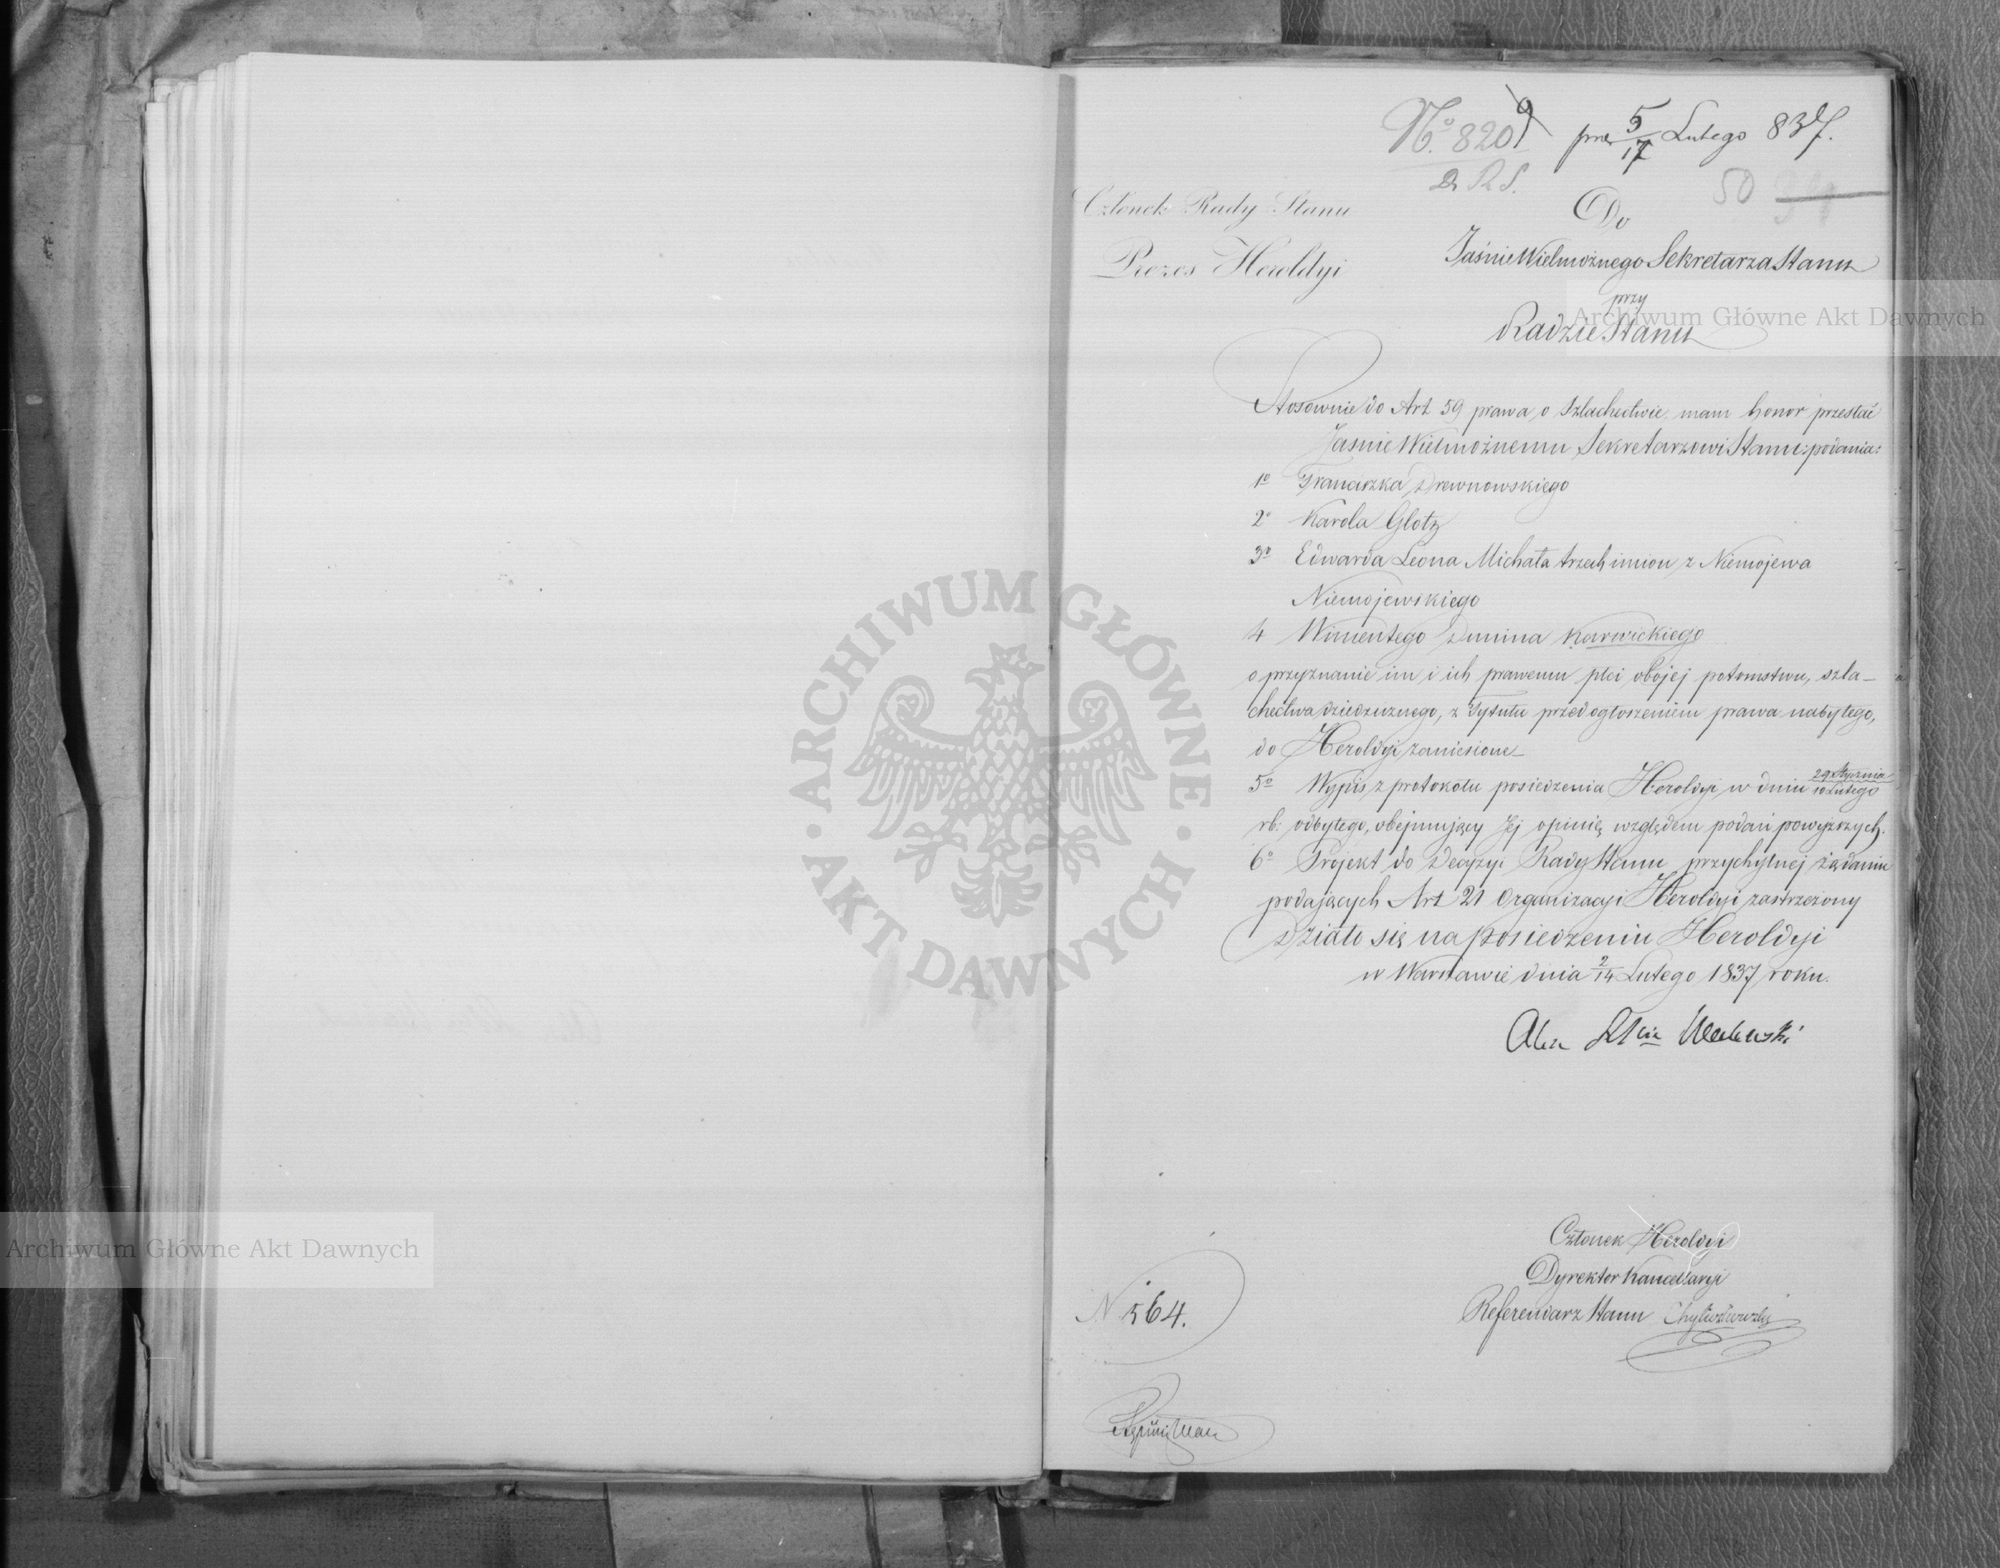 No. 8209 prez 5/17 Lutego 837.
D. R. S.
50
Członek Rady Stanu
Prezes Heroldyi
Do
Jaśnie Wielmożnego Sekretarza Stanu
przy
Radzie Stanu
Stosownie do Art 59 prawa o Szlachectwie, mam honor przesłać
Jaśnie Wielmożnemu Sekretarzowi Stanu: podania:
1o Franciszka Drewnowskiego
2o Karola Glotz
3o Edwarda Leona Michała trzech imion z Niemojewa
Niemojewskiego
4 Wincentego Dunina Karwickiego
o przyznanie im i ich prawemu płci obojej potomstwu, szla-
chectwa dziedzicznego, z Tytułu przed ogłoszeniem prawa nabytego,
do Heroldyi zaniesione
5o Wypis z protokołu posiedzenia Heroldyi w dniu 29 Stycznia/10 Lutego
rb: odbytego, obejmujący Jej opinię względem podań powyższych.
6o Projekt do Decyzyi Rady Stanu przychylnej żądaniu
podających Art 21 Organizacyi Heroldyi zastrzeżony
Działo się na posiedzeniu Heroldyi
w Warszawie dnia 2/14 Lutego 1837 roku.
Alex Walewski
Członek Heroldyi
Dyrektor Kancellaryi
Referendarz Stanu Chyliczkowski
N 564.
Archiwum Główne Akt Dawnych
Archiwum Główne Akt Dawnych
ARCHIWUM GŁÓWNE · AKT DAWNYCH ·